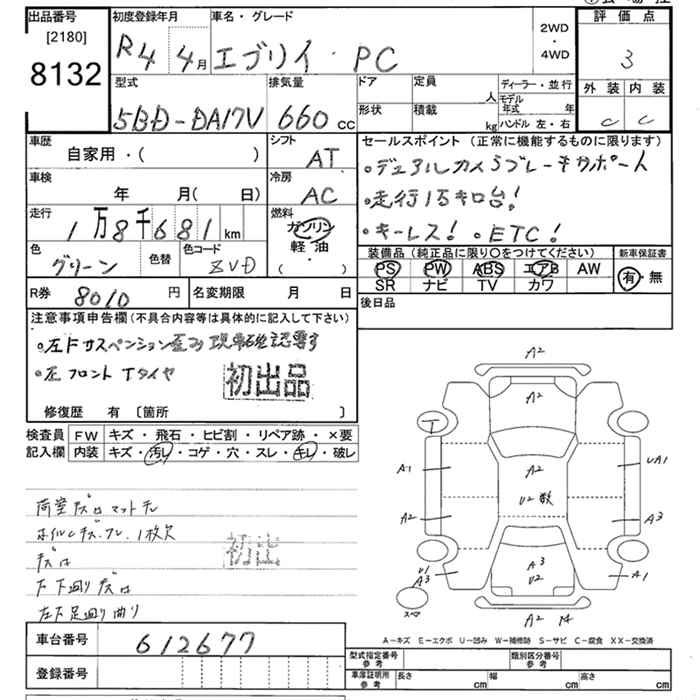 出品番号
[2180]
8132
初度登録年月
R4 4月
車名・グレード
エブリイ・PC
2WD
・
4WD
評価点
3
外装 内装
C C
型式
5BD-DA17V
排気量
660 cc
ドア
定員
人
ディーラー・並行
形状
積載
kg
モデル年式 年
ハンドル 左・右
車歴
自家用・( )
シフト
AT
車検
年 月( 日)
冷房
AC
走行
1万8千681 km
燃料
ガソリン
軽・油
( )
色
グリーン
色替
色コード
ZVD
セールスポイント (正常に機能するものに限ります)
・デュアルカメラブレーキサポート
・走行1万キロ台!
・キーレス! ・ETC!
装備品(純正品に限り〇をつけてください)
PS PW ABS エアB AW
SR ナビ TV カワ
新車保証書
有・無
R券 8010 円
名変期限 月 日
後日品
注意事項申告欄(不具合内容等は具体的に記入して下さい)
・左Fサスペンション歪み現車確認要す
・左フロントTタイヤ
初出品
修復歴 有 〔箇所 〕
検査員記入欄
FW キズ・飛石・ヒビ割・リペア跡・×要
内装 キズ・汚レ・コゲ・穴・スレ・キレ・破レ
荷室キズ マットナシ
ホイルキズ、 1枚欠
下下廻りキズ
左下足廻り曲り
初出
A2
A2
T
A1
A2
UA1
U2 数
A2
A3
U1
A3
A3
U2
A1
スペア
A2
A-キズ E-エクボ U-凹み W-補修跡 S-サビ C-腐食 XX-交換済
車台番号 612677
登録番号
型式指定番号
参考
類別区分番号
参考
車庫証明用
参考
長さ cm
幅 cm
高さ cm